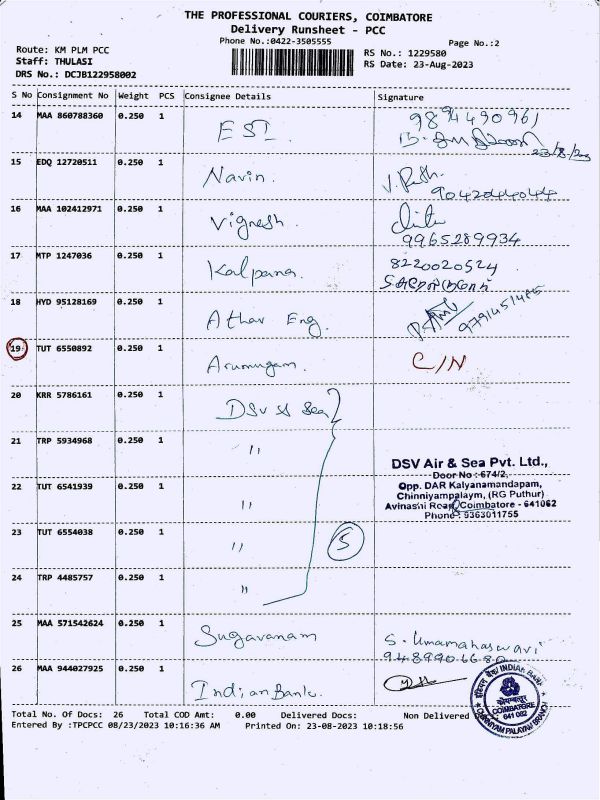 THE PROFESSIONAL COURIERS, COIMBATORE
Delivery Runsheet - PCC
Phone No.:0422-3505555
Page No.:2
Route: KM PLM PCC
RS No.: 1229580
Staff: THULASI
RS Date: 23-Aug-2023
DRS No.: DCJB122958002
S No Consignment No Weight PCS Consignee Details Signature
14 MAA 860788360 0.250 1 ESI. 9894490961
23/8/203
15 EDQ 12720511 0.250 1 Navin.
9042044044
16 MAA 102412971 0.250 1 Vignesh.
9965289934
17 MTP 1247036 0.250 1 Kalpana. 8220020524
18 HYD 95128169 0.250 1 Athav Eng. 9791451485
19 TUT 6550892 0.250 1 Arumugam. C/N
20 KRR 5786161 0.250 1 DSV & Sea
21 TRP 5934968 0.250 1 "
DSV Air & Sea Pvt. Ltd.,
Door No : 674/2,
22 TUT 6541939 0.250 1 "
Opp. DAR Kalyanamandapam,
Chinniyampalaym, (RG Puthur)
Avinashi Road, Coimbatore - 641062
Phone : 9363011755
23 TUT 6554038 0.250 1 "
5
24 TRP 4485757 0.250 1 "
25 MAA 571542624 0.250 1 Sugavanam S. Umamaheswari
26 MAA 944027925 0.250 1 Indian Bank.
INDIAN BANK
COIMBATORE
641 062
CHINNIYAM PALAYAM BRANCH
Total No. Of Docs: 26 Total COD Amt: 0.00 Delivered Docs: Non Delivered
Entered By :TPCPCC 08/23/2023 10:16:36 AM Printed On: 23-08-2023 10:18:56